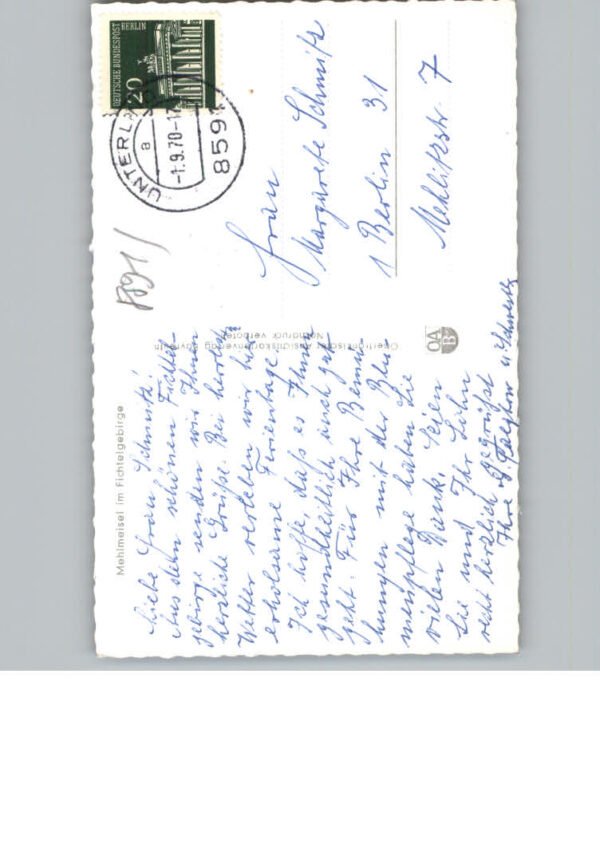 Mehlmeisel im Fichtelgebirge
Liebe Frau Schmitz!
Aus dem schönen Fichtel-
gebirge senden wir Ihnen
herzliche Grüße. Bei herrl.
Wetter verleben wir hier
erholsame Ferientage.
Ich hoffe, daß es Ihnen
gesundheitlich auch gut
geht. Für Ihre Bemü-
hungen mit der Blu-
menpflege haben Sie
vielen Dank. Seien
Sie und Ihr Sohn
recht herzlich gegrüßt
Ihre
Oberfränkischer Ansichtskartenverlag Bayreuth
Nachdruck verboten
OAB
DEUTSCHE BUNDESPOST
BERLIN
20
UNTERLA
a
-1.9.70-17
8591
8591/
Frau
Margarete Schmitz
1 Berlin 31
Mehlitzstr. 7